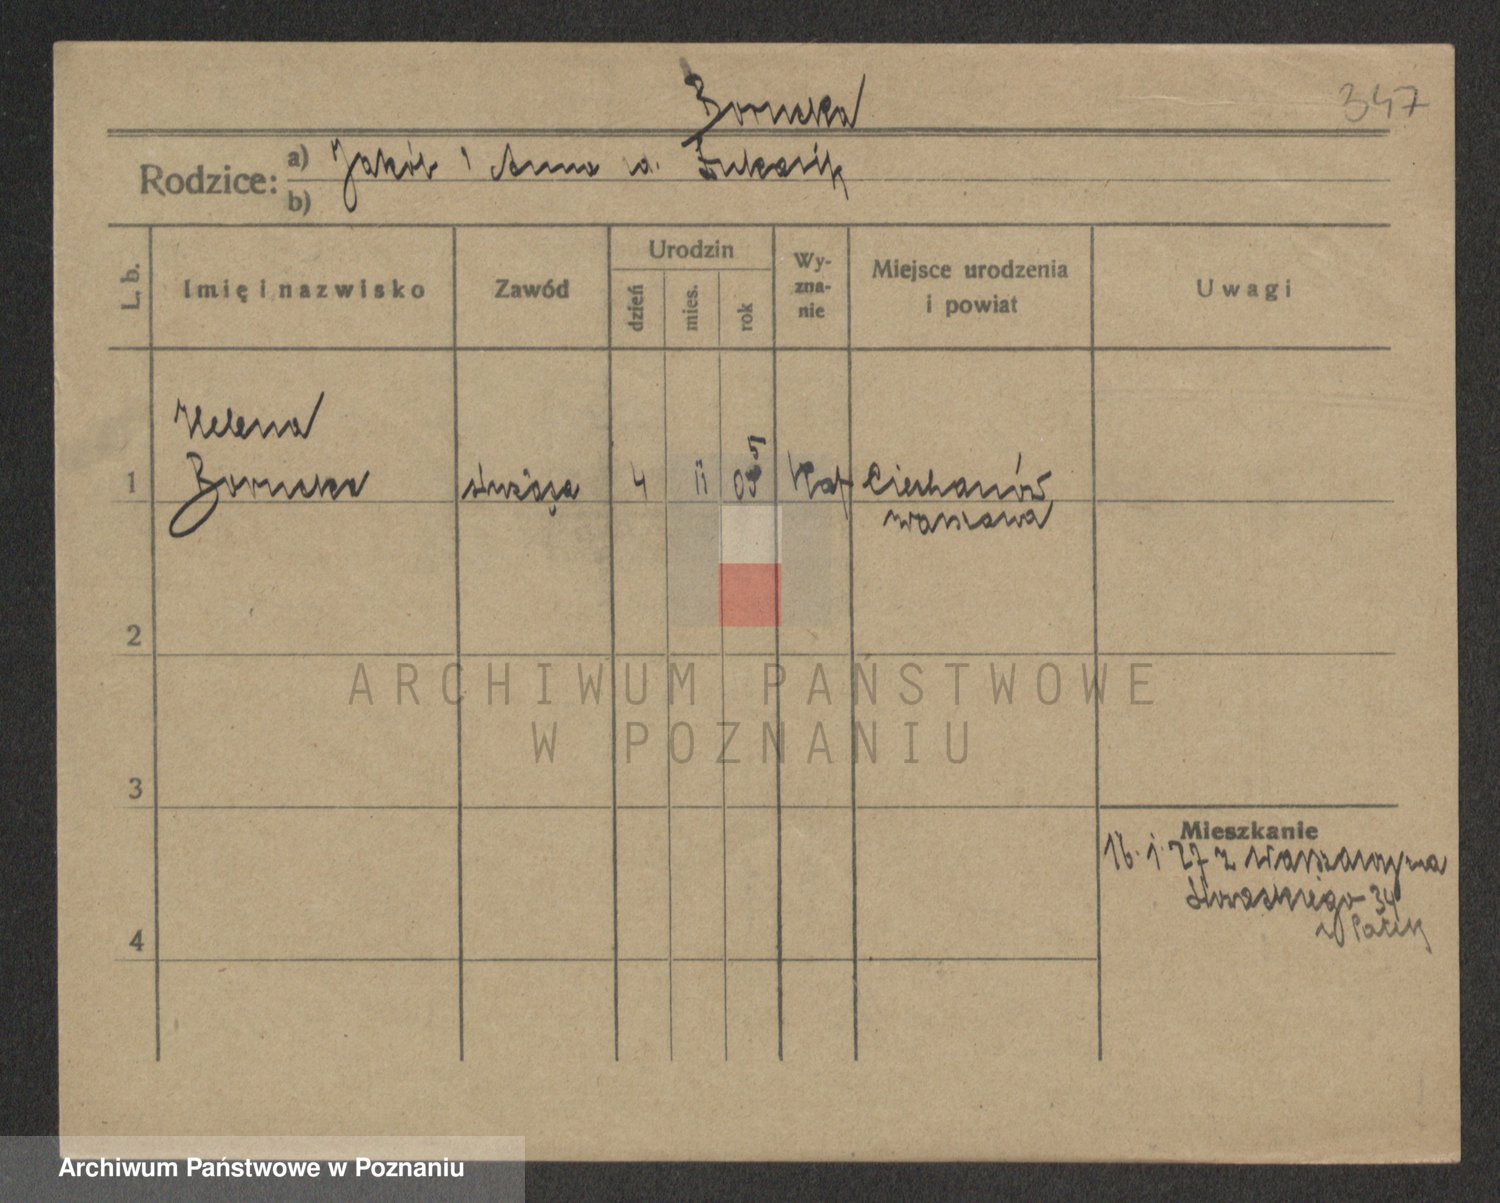 Borucka
347
Rodzice: a) Jakób i Anna u. Łukasik
b)
L. b.
Imię i nazwisko
Zawód
Urodzin
dzień
mies.
rok
Wy-
zna-
nie
Miejsce urodzenia
i powiat
Uwagi
Helena
1 Borucka służąca 4 II 05 Kat Ciechanów
Warszawa
2
ARCHIWUM PAŃSTWOWE
W POZNANIU
3
Mieszkanie
16 1 27 z Warszawy na
Słowackiego 34
4
Archiwum Państwowe w Poznaniu